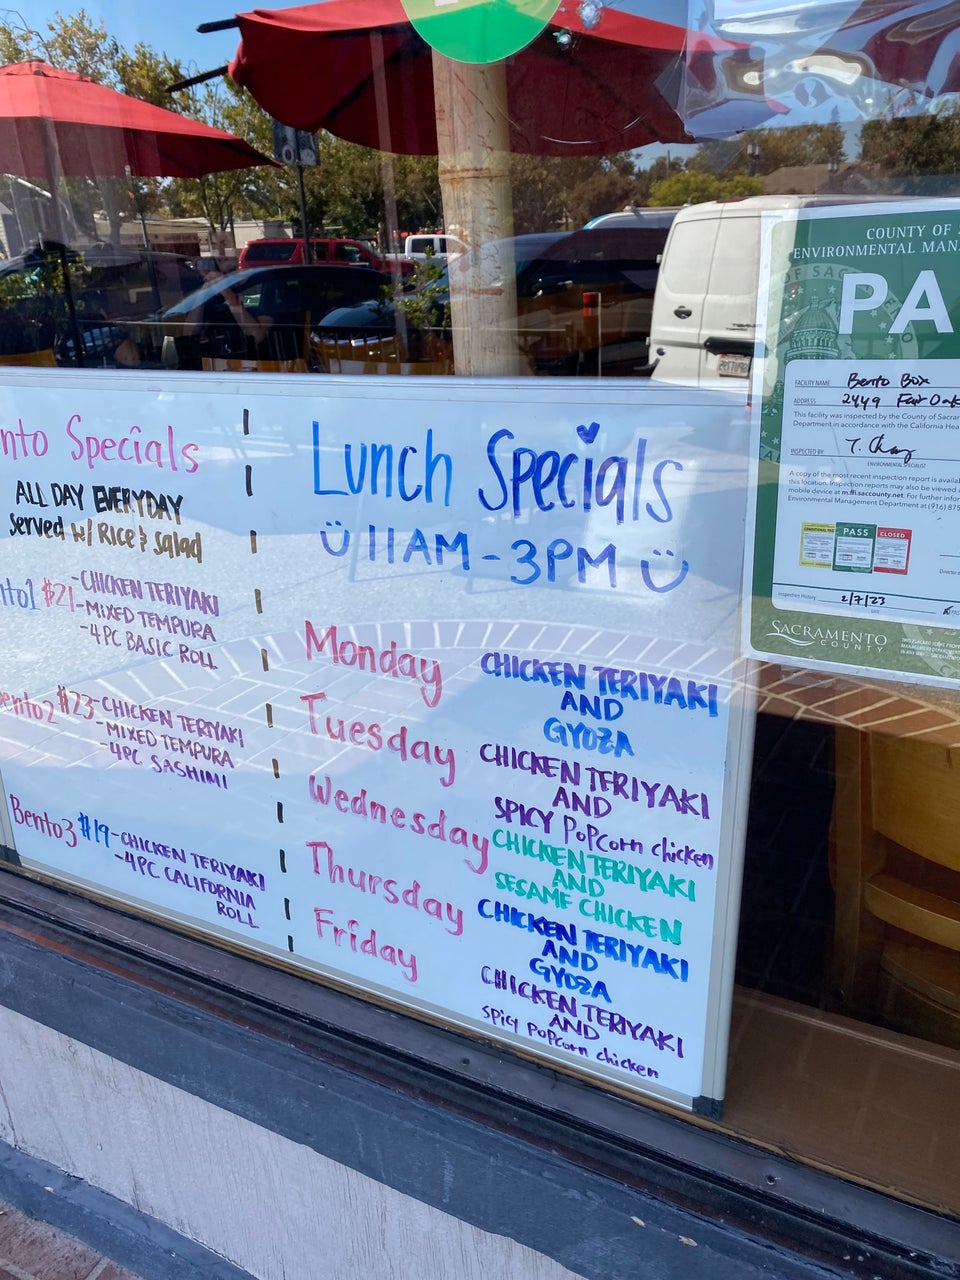 nto Specials
ALL DAY EVERYDAY
Served w/ Rice & Salad
nto1 $21 -CHICKEN TERIYAKI
-MIXED TEMPURA
-4PC BASIC ROLL
ento2 $23 -CHICKEN TERIYAKI
-MIXED TEMPURA
-4PC SASHIMI
Bento3 $19 -CHICKEN TERIYAKI
-4PC CALIFORNIA
ROLL
Lunch Specials
11AM - 3PM
Monday CHICKEN TERIYAKI
AND
GYOZA
Tuesday CHICKEN TERIYAKI
AND
SPICY POPCORN chicken
Wednesday CHICKEN TERIYAKI
AND
SESAME CHICKEN
Thursday CHICKEN TERIYAKI
AND
GYOZA
Friday CHICKEN TERIYAKI
AND
SPICY POPCORN chicken
COUNTY OF
ENVIRONMENTAL MANA
PA
FACILITY NAME Bento Box
ADDRESS 2449 Fair Oak
This facility was inspected by the County of Sacra
Department in accordance with the California Hea
INSPECTED BY
ENVIRONMENTAL SPECIALIST
A copy of the most recent inspection report is availa
this location. Inspection reports may also be viewed
mobile device at m.ffi.saccounty.net. For further infor
Environmental Management Department at (916) 875
PASS
CLOSED
Inspection History 2/7/23
DATE
SACRAMENTO
COUNTY